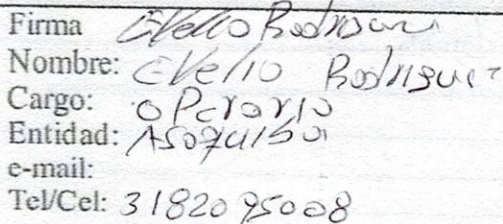 Firma Evelio Rodriguez
Nombre: Evelio Rodriguez
Cargo: OPerario
Entidad:
e-mail:
Tel/Cel: 3182095008